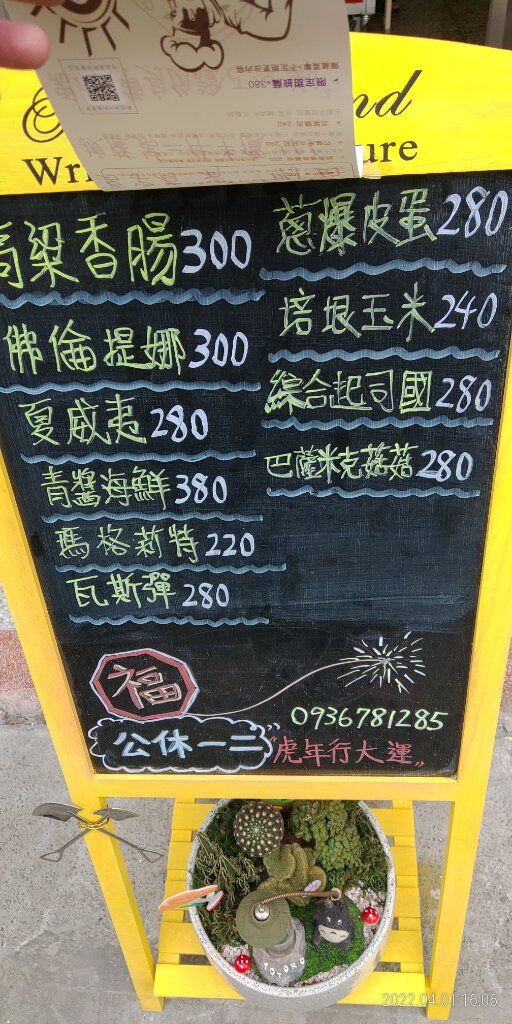 nd
Wri
ure
限定甜披薩·380
高粱香腸300
佛倫提娜300
夏威夷280
青醬海鮮380
瑪格莉特220
瓦斯彈280
蔥爆皮蛋280
培根玉米240
綜合起司國280
巴薩米克菇菇280
福
0936781285
公休一二
"虎年行大運"
TOTORO
2022.04.01 16:06